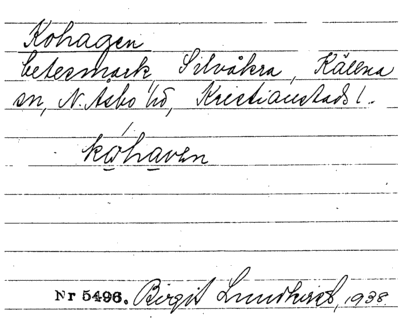 Kohagen
betesmark, Silvåkra, Källna
sn, N. Åsbo hd, Kristianstads l.
kohaven
Nr 5496. Birgit Lundkvist, 1938.